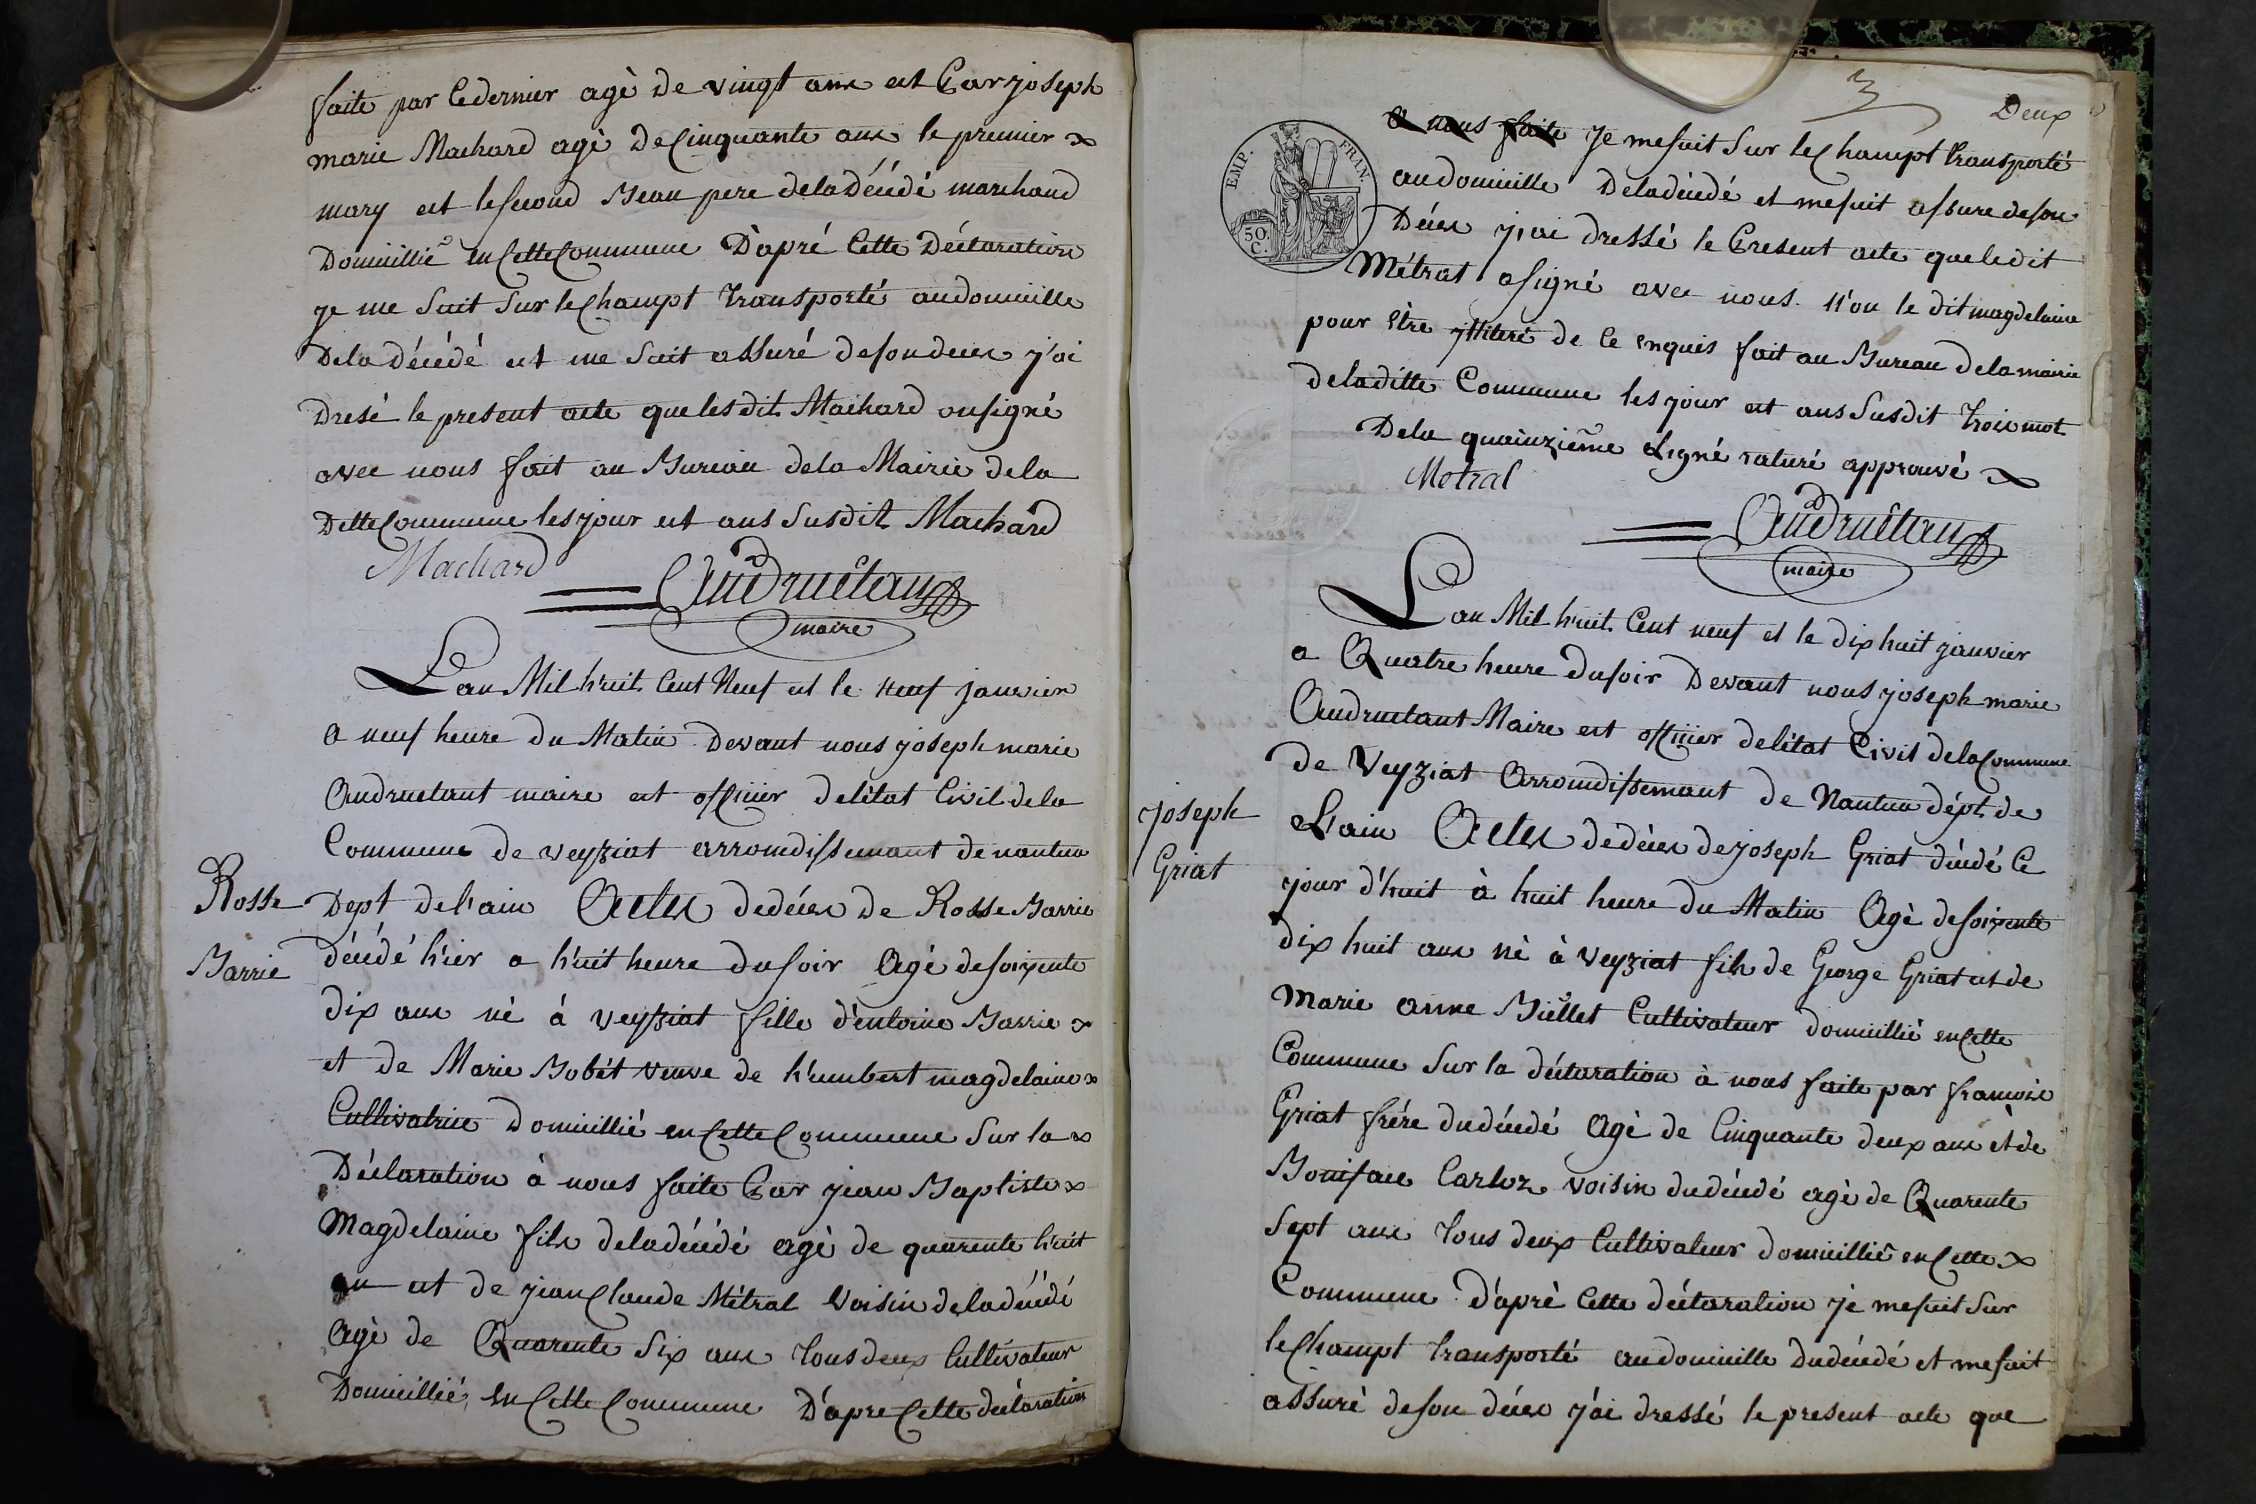 faite par Ledernier agè De vingt ans est Par joseph
marie Machard agè De Cinquante ans le premier
mary est le second Beau pere dela Décédé marchand
Domicillié en Cette Commune D'apré Cette Déclaration
je me Suit Sur le Champt Transporté audomicille
Dela décédé est me Suit assuré deson deces j'ai
Dresé le present acte que lesdit Machard onsigné
avec nous fait au Bureau dela Mairie dela
Ditte Commune les jour est ans Susdit Machard
Machard
Andruétan
maire
L'an Mil huit Cent Neuf est le neuf janvier
a neuf heure Du Matin Devant nous joseph marie
Andruetant maire est officier delétat Civil dela
Commune de veyziat arromdissemant de nantua
Rosse
Barrie
Dept del'ain Actes dedéces De Rosse Barrie
décédé h'ier a h'uit heure dusoir Agè desoixente
dix ans nè à veyziat fille d'entoine Barrie
et de Marie Bobét veuve de h'umbert magdelaine
Cultivatrice Domicillié en Cette Commune Sur la
Déclaration à nous faite Par jean Baptiste
Magdelaine fils deladécédé agè de quarente h'uit
an est de jean Claude Métral Voisin deladécédé
Agè de Quarente Six ans Tous deux Cultivateur
Domicillié en Cette Commune D'apre Cette déclaration
3
Deux
EMP. FRAN.
50
C.
a nous faite je mesuit Sur le Champt transporté
audomicille Deladécédé et mesuit assure deson
Déces j'ai dressé le Present acte queledit
Métrat asigné avec nous. N'on le dit magdelaine
pour être jlliteré de Ce enquis fait au Bureau delamairie
deladitte Commune les jour est ans Susdit Trois mot
Dela quainzième Ligné raturé approuvé
Metral
Andruétan
maire
L'an Mil huit Cent neuf et le dix huit janvier
a Quatre heure dusoir Devant nous joseph marie
Andruetant Maire est officier delétat Civil dela Commune
de Veyziat Arromdissemant de Nantua dépt de
joseph
Griat
L'ain Actes dedéces de joseph Griat décédé Ce
jour d'huit à huit heure du Matin Agè desoixente
dix huit ans nè à veyziat fils de George Griat est de
Marie anne Billet Cultivateur domicillié en Cette
Commune Sur la déclaration à nous faite par françoise
Griat frére dudécédé Agè de Cinquante deux ans et de
Boniface Carloz voisin dudécédé agè de Quarente
Sept ans Tous deux Cultivateur domicillié en Cette
Commune D'aprè Cette déclaration je mesuit Sur
le Champt Transporté audomicille Dudécédé et mesuit
assuré deson déces j'ai dressé le present acte que